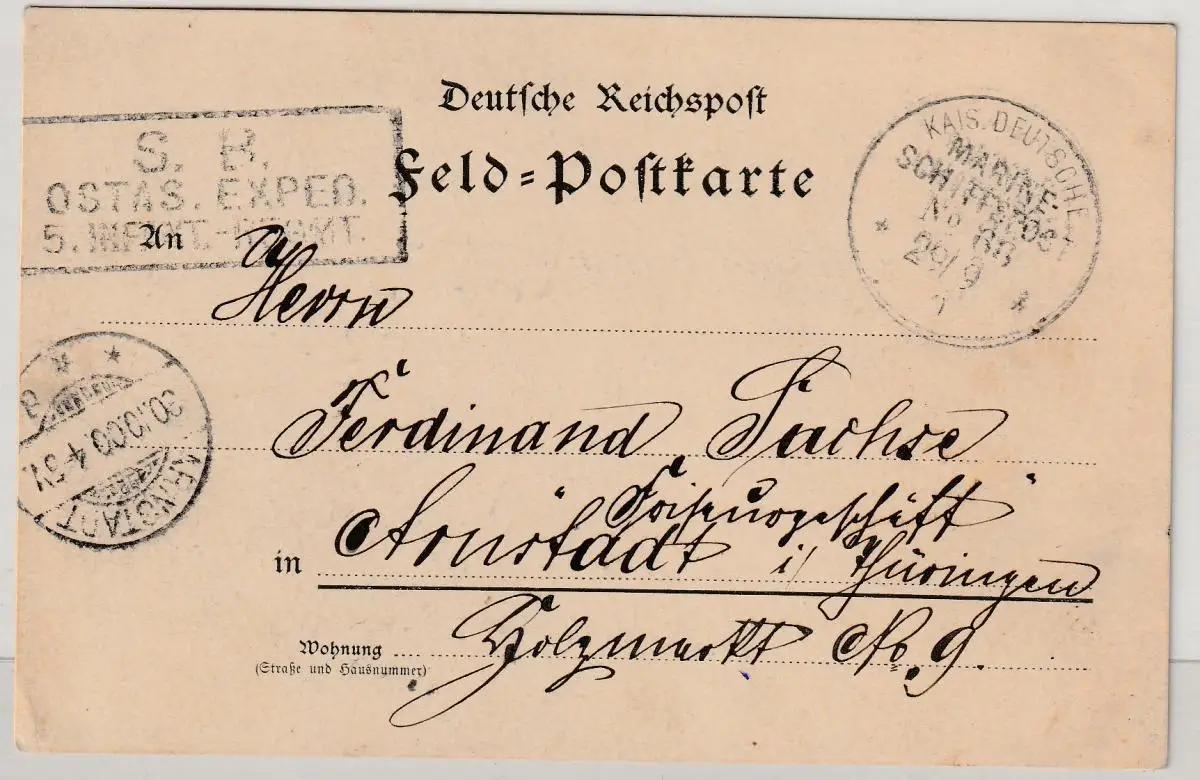 Deutsche Reichspost
Feld-Postkarte
S. B.
OSTAS. EXPED.
5. INFANT.-REGIMT.
KAIS. DEUTSCHE
MARINE-
SCHIFFSPOST
No
29/9
An
Herrn
Ferdinand Sachse
Friseurgeschäft
in Arnstadt i/ Thüringen
Wohnung Holzmarkt No. 9.
(Straße und Hausnummer)
ARNSTADT
30.10.00 4-5N.